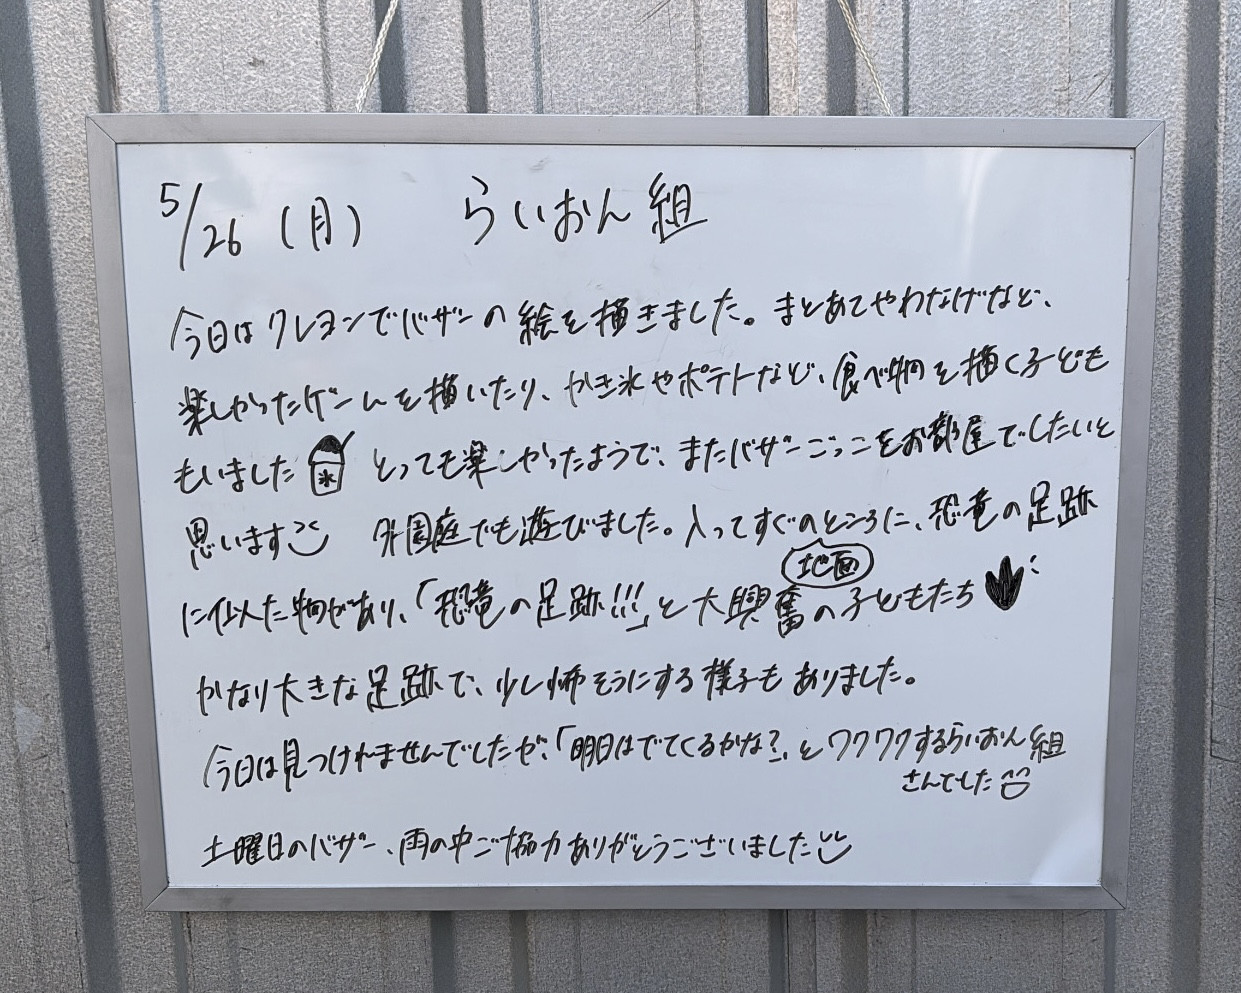 5/26 (月) らいおん組
今日はクレヨンでバザーの絵を描きました。まとあてやわなげなど、
楽しかったゲームを描いたり、かき氷やポテトなど、食べ物を描く子ども
もいました 氷 とっても楽しかったようで、またバザーごっこをお部屋でしたいと
思います 外園庭でも遊びました。入ってすぐのところに、恐竜の足跡
地面
に似た物があり、「恐竜の足跡!!!」と大興奮の子どもたち
かなり大きな足跡で、少し怖そうにする様子もありました。
今日は見つけれませんでしたが、「明日はでてくるかな?」とワクワクするらいおん組
さんでした
土曜日のバザー、雨の中ご協力ありがとうございました